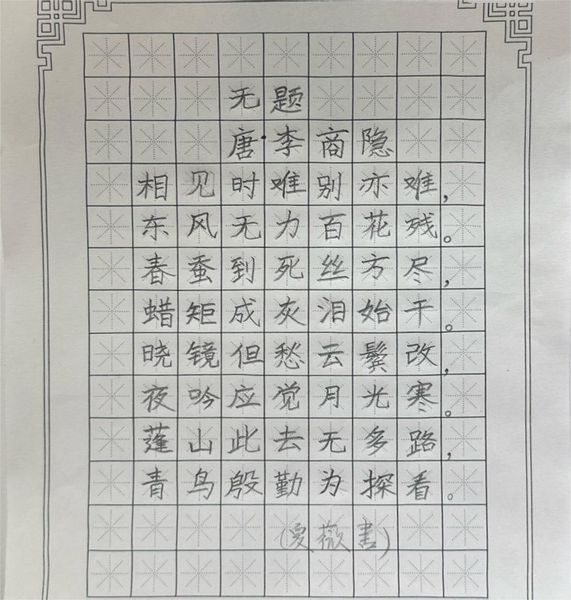 无题
唐·李商隐
相见时难别亦难，
东风无力百花残。
春蚕到死丝方尽，
蜡矩成灰泪始干。
晓镜但愁云鬓改，
夜吟应觉月光寒。
蓬山此去无多路，
青鸟殷勤为探看。
(夏薇书)